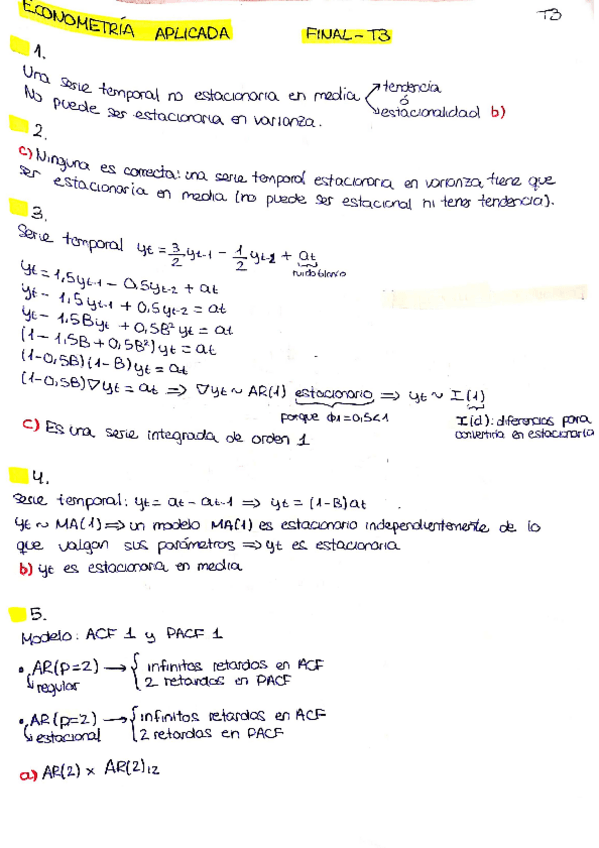 ECONOMETRÍA APLICADA FINAL-T3 T3
1.
Una serie temporal no estacionaria en media tendencia
ó
No puede ser estacionaria en varianza. estacionalidad b)
2.
c) Ninguna es correcta: una serie temporal estacionaria en varianza tiene que
ser estacionaria en media (no puede ser estacional ni tener tendencia).
3.
Serie temporal yt = 3/2 yt-1 - 1/2 yt-2 + at
ruido blanco
yt = 1,5yt-1 - 0,5yt-2 + at
yt - 1,5yt-1 + 0,5yt-2 = at
yt - 1,5Byt + 0,5B² yt = at
(1 - 1,5B + 0,5B²) yt = at
(1-0,5B)(1-B)yt = at
(1-0,5B)∇yt = at ⇒ ∇yt ~ AR(1) estacionario ⇒ yt ~ I(1)
porque ϕ1=0,5<1 I(d): diferencias para
convertirla en estacionaria
c) Es una serie integrada de orden 1
4.
Serie temporal: yt = at - at-1 ⇒ yt = (1-B)at
yt ~ MA(1) ⇒ un modelo MA(1) es estacionario independientemente de lo
que valgan sus parámetros ⇒ yt es estacionaria
b) yt es estacionaria en media
5.
Modelo: ACF 1 y PACF 1
• AR(p=2) → { infinitos retardos en ACF
regular 2 retardos en PACF
• AR(p=2) → { infinitos retardos en ACF
estacional 2 retardos en PACF
a) AR(2) x AR(2)12